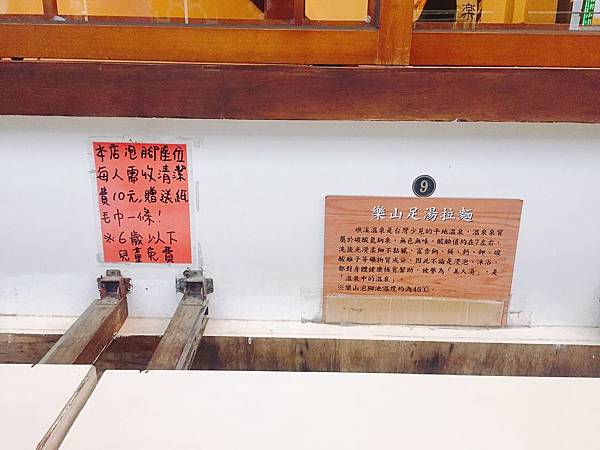 楽
本店泡腳座位
每人需收清潔
費10元,贈送紙
毛巾一條!
※6歲以下
兒童免費
9
樂山足湯拉麵
礁溪溫泉是台灣少見的平地溫泉,溫泉泉質
屬於碳酸氫鈉泉,無色無味,酸鹼值約在7左右,
洗後光滑柔細不黏膩,富含鈉、鎂、鈣、鉀、碳
酸離子等礦物質成分,因此不論是浸泡、沐浴,
都對身體健康極有幫助,被譽為「美人湯」,是
「溫泉中的溫泉」。
※樂山泡腳池溫度約為45℃